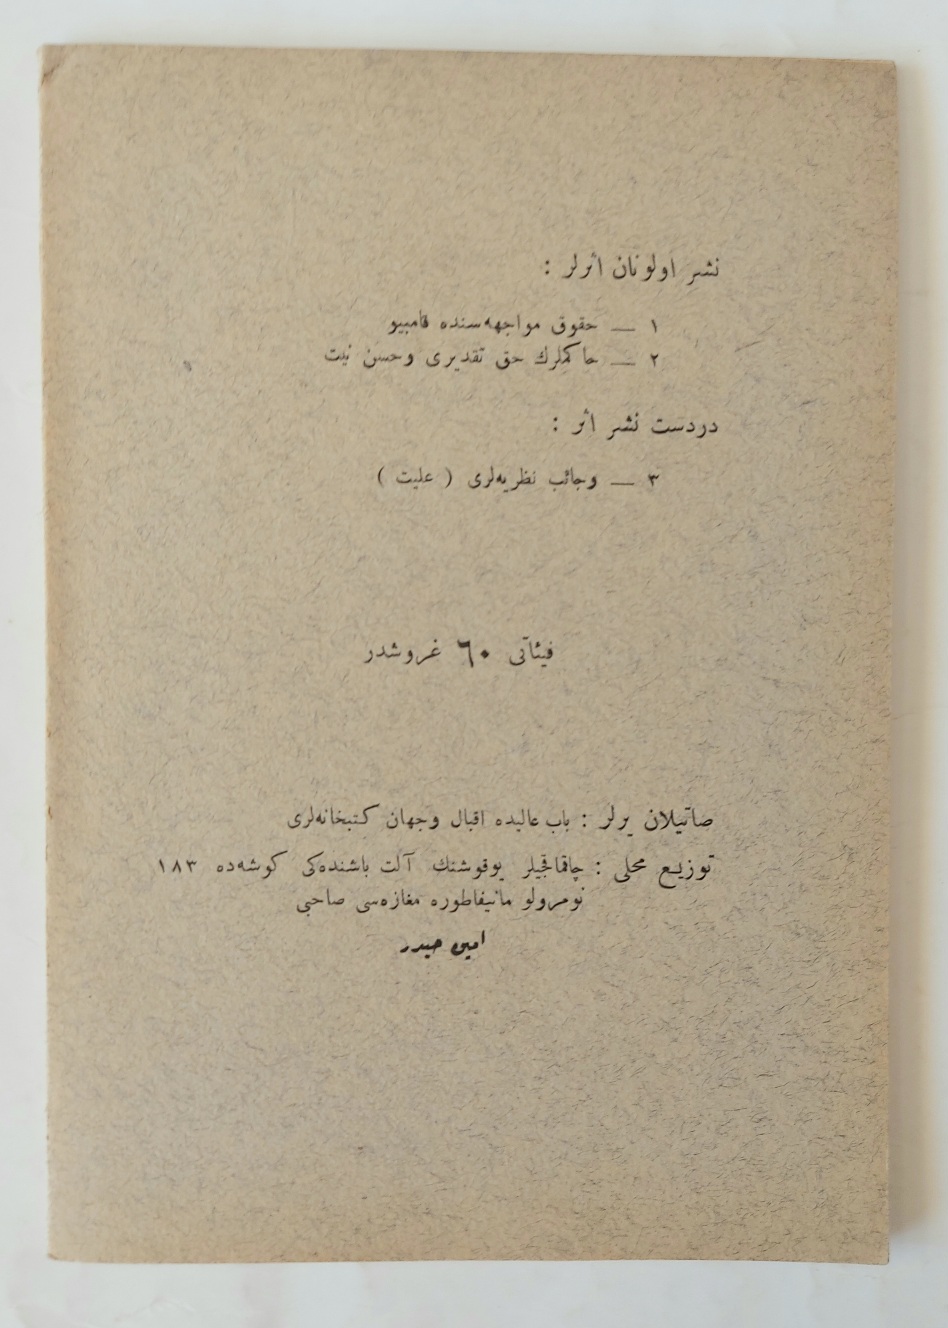 نشر اولونان اثرلر :
۱ — حقوق مواجهه‌سنده قامبیو
۲ — حاكملرك حق تقدیری وحسن نیت
دردست نشر اثر :
۳ — وجائب نظریه‌لری ( علیت )
فیئاتی ٦٠ غروشدر
صاتیلان یرلر : باب عالیده اقبال وجهان كتبخانه‌لری
توزیع محلی : چاقماقجیلر یوقوشنك آلت باشنده‌كی كوشه‌ده ۱۸۳
نومرولو مانیفاطوره مغازه‌سی صاحبی
امین حیدر